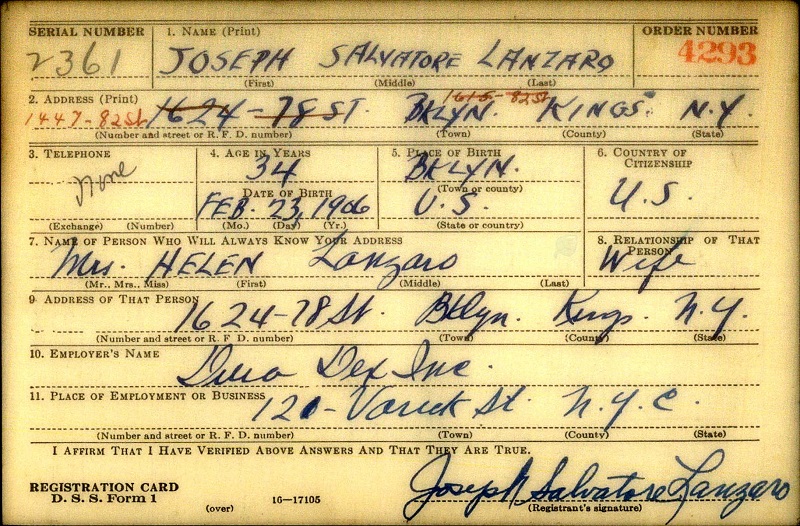 SERIAL NUMBER 1. NAME (Print) ORDER NUMBER
2361 JOSEPH SALVATORE LANZARO 4293
(First) (Middle) (Last)
2. ADDRESS (Print) 1615-82St
1447-82St. 1624-78 ST. BKLYN. KINGS. N.Y.
(Number and street or R. F. D. number) (Town) (County) (State)
3. TELEPHONE 4. AGE IN YEARS 5. PLACE OF BIRTH 6. COUNTRY OF CITIZENSHIP
None 34 BKLYN.
DATE OF BIRTH (Town or county)
FEB. 23, 1906 U.S. U.S.
(Exchange) (Number) (Mo.) (Day) (Yr.) (State or country)
7. NAME OF PERSON WHO WILL ALWAYS KNOW YOUR ADDRESS 8. RELATIONSHIP OF THAT PERSON
Mrs. HELEN Lanzaro Wife
(Mr., Mrs., Miss) (First) (Middle) (Last)
9 ADDRESS OF THAT PERSON
1624-78 St. Bklyn. Kings. N.Y.
(Number and street or R. F. D. number) (Town) (County) (State)
10. EMPLOYER'S NAME
Dura Dex Inc.
11. PLACE OF EMPLOYMENT OR BUSINESS
121-Varick St. N.Y.C.
(Number and street or R. F. D. number) (Town) (County) (State)
I AFFIRM THAT I HAVE VERIFIED ABOVE ANSWERS AND THAT THEY ARE TRUE.
REGISTRATION CARD Joseph Salvatore Lanzaro
D. S. S. Form 1 (over) 16-17105 (Registrant's signature)